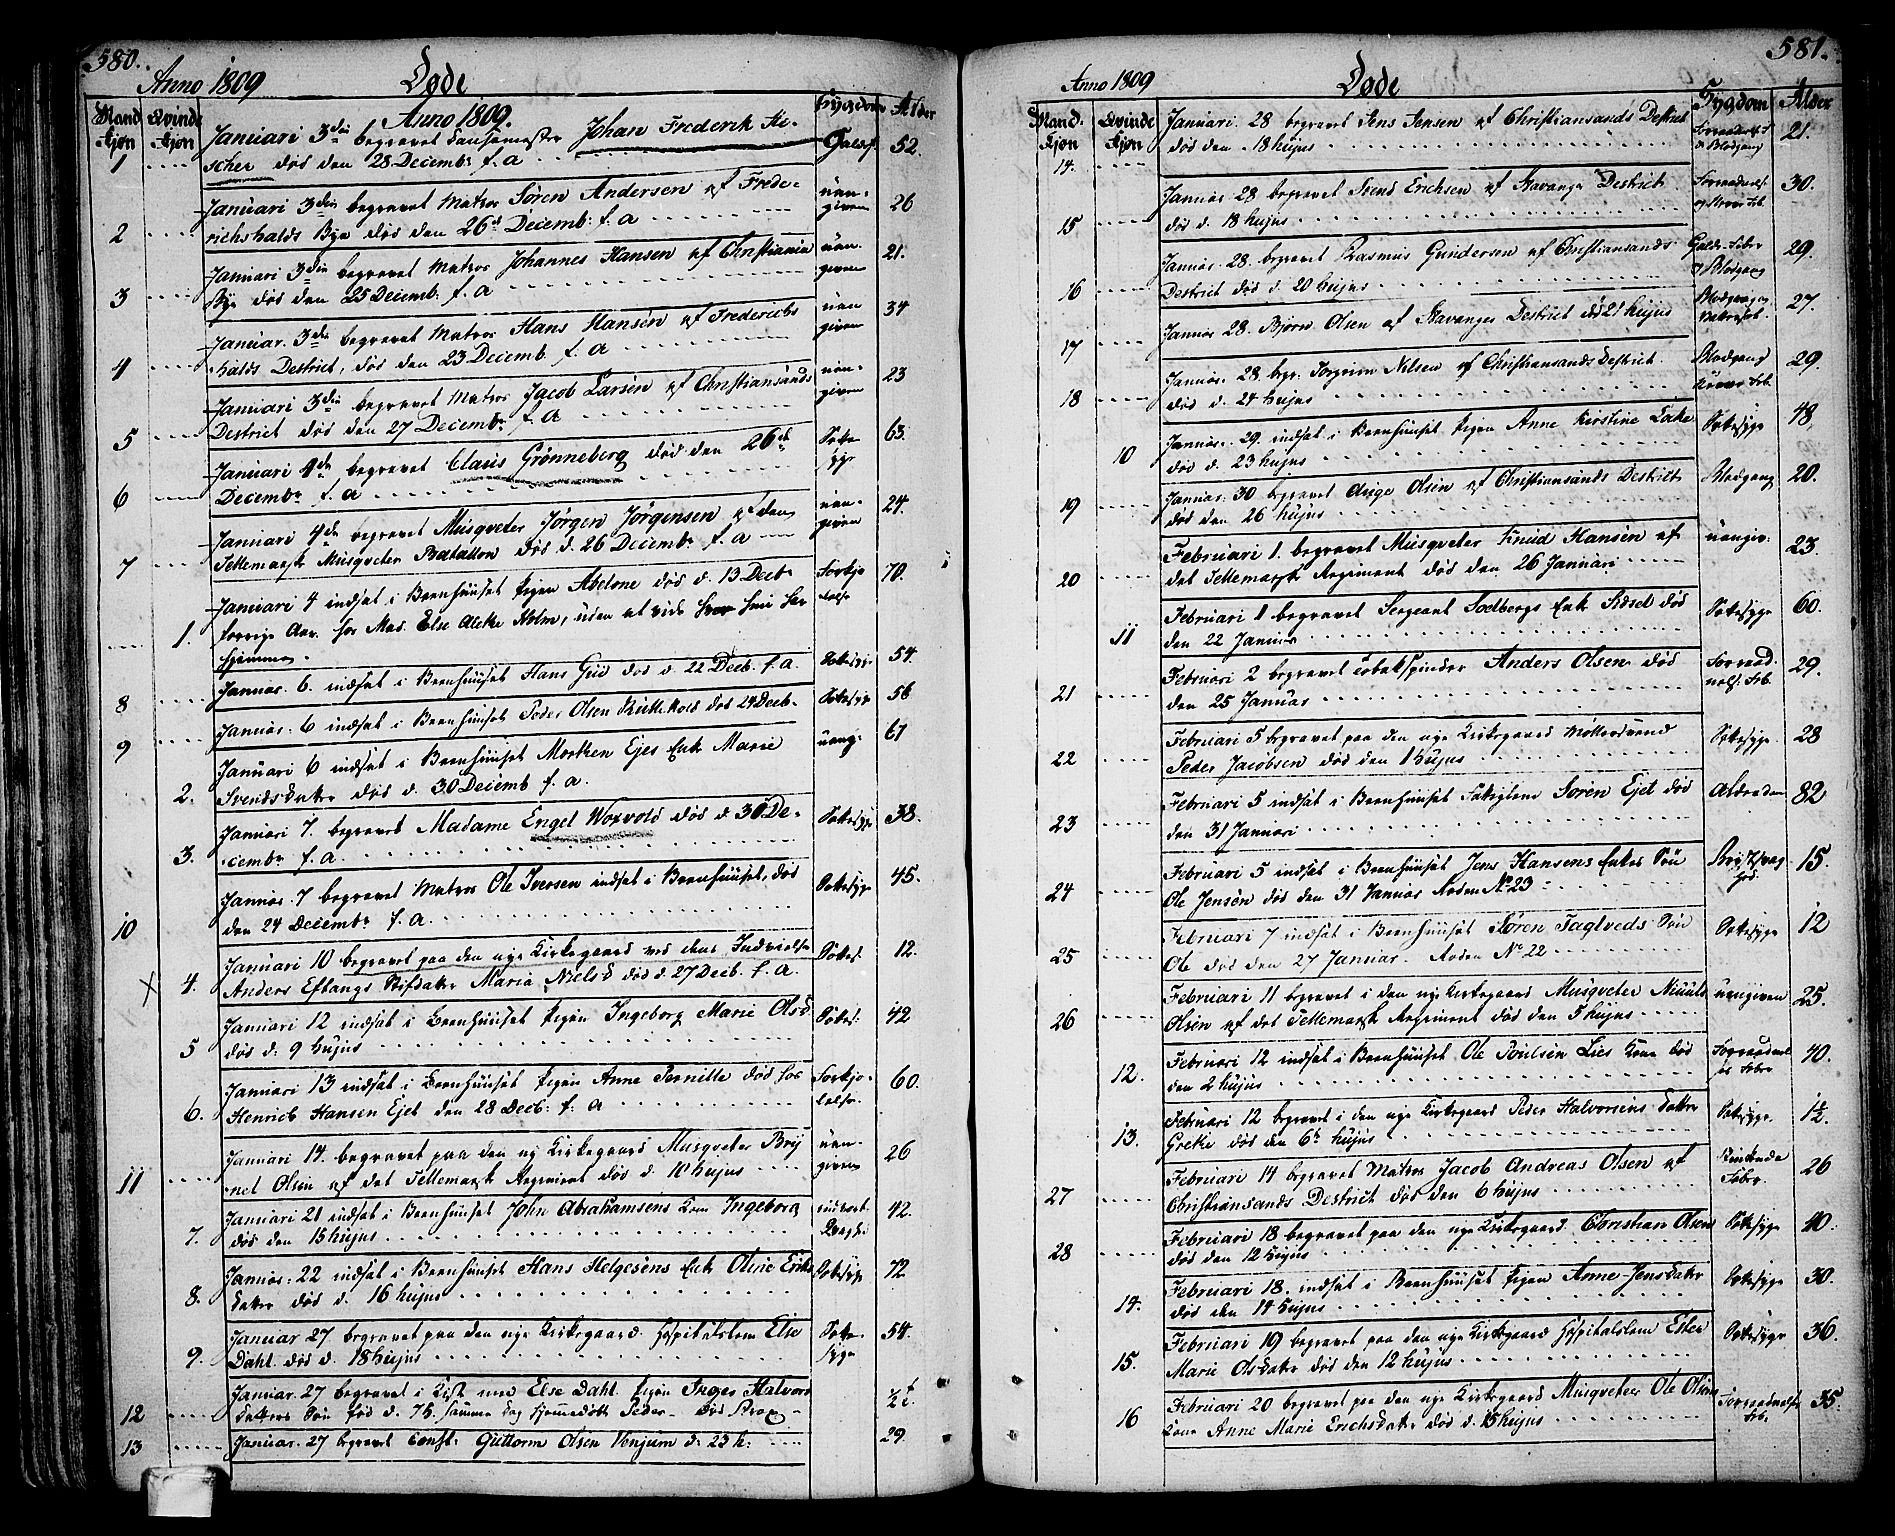 580.
Anno 1809
Døde
Mand Kjøn
Qvinde Kjøn
Anno 1809.
Sygdom
Alder
1 Januari 3die begravet Dansemester Johan Frederik Fi-
scher død den 28 Decembr f. a 52.
2 Januari 3die begravet Matros Søren Andersen af Frede-
richshalds Bye død den 26de Decemb: f. a uan-given 26
3 Januari 3die begravet Matros Johannes Hansen af Christiania
Bye død den 25 Decemb: f. a uan-given 21.
4 Januar. 3die begravet Matros Hans Hansen af Fredrichs
halds District, død den 23 Decemb. f. a uan given 34
5 Januari 3die begravet Matros Jacob Larsen af Christiansands
Destrict død den 27 Decembr f. a uan-given 23
6 Januari 4de begravet Claus Grønneberg død den 26de
Decembr f. a Sotte syge 63.
7 Januari 4de begravet Musqveter Jørgen Jørgensen af den
Tellemarsk Musqveter Batallon død d. 26 Decembr f. a uan-given 24.
1. Januari 4 indsat i Beenhuuset Pigen Abelone død d. 13 Decb.
forrige Aar hos Mad. Else Holm, uden at vide hvor hun har
hjemme. Forkjølelse 70.
8 Januar. 6. indsat i Beenhuuset Hans Gud død d. 22 Decb. f. a. Sottesyge 54.
9 Januar. 6 indsat i Beenhuuset Peder Olsen død 29 Decb. Sottesyge 56
2. Januari 6 indsat i Beenhuuset Morthen Ejes Enke Marie
Svendsdatter død d. 30 Decemb f. a. uang. 61
3. Januari 7. begravet Madame Engel Woxvold død d. 30 De-
cembr f. a. Sottesyge 38.
10 Januar. 7 begravet Matros Ole Iversen indsat i Beenhuuset, død
den 24 Decembr f. a. Sottesyge 45.
4. Januari 10 begravet paa den nye Kirkegaard ved dens Indvielse
Anders Eftangs Stifdatter Maria Nielsd død d. 27 Decb. f. a. Sottes. 12.
5 Januari 12 indsat i Beenhuuset Pigen Ingeborg Marie Olsd.
død d. 9 hujus Sottes: 42
6. Januari 13 indsat i Beenhuuset Pigen Anne Pernille død hos
Henrich Hansen Ejet den 28 Decb: f: a Forkjølelse 60.
11 Januari 14. begravet paa den ny Kirkegaard Musqveter Bry
nel Olsen af det Tellemarsk Regiment død d. 10 hujus uan-given 26
7. Januari 21 indsat i Beenhuuset John Abrahamsens Kone Ingeborg
død den 15 hujus 42.
8. Januar: 22 indsat i Beenhuuset Hans Helgesens Enke Oline Eriks
datter død d. 16 hujus Sottesyge 72
9. Januar 27 begravet paa den nye Kirkegaard Hospitalslem Else
Dahl død d. 18 hujus Sotte-syge 54.
12 Januar. 27 begravet i Kiste med Else Dahl Pigen Inger Halvors
datters Søn fød d. 7 h. samme dag hjemmedøbt Peder- død 1/2 t.
13 Januar. 27 begravet Const: Guttorm Olsen Venjum d. 23 h. 29
581.
Anno 1809
Døde
Mand-Kjøn
Qvinde Kjøn
Sygdom
Alder
14. Januari. 28 begravet Jens Jensen af Christiansands Destrict
død den 18 hujus Forraadnelse & Blodgang 21.
15 Januar 28 begravet Svend Erichsen af Stavanger Destrict
død d. 18 hujus 30.
16 Januar. 28. begravet Rasmus Gundersen af Christiansands
Destrict død d. 20 hujus Galde-Feber og Blodgang 29.
17 Januar 28. Bjørn Olsen af Stavanger Destrict død 21 hujus Blodgang og 27.
18 Januar. 28. begr. Torgrim Nilsen af Christiansands Destrict
død d. 24 hujus Blodgang 29.
10 Januar. 29. indsat i Beenhuuset Pigen Anne Kirstine
død d. 23 hujus Sottesyge 48.
19 Januar. 30 begravet Aage Olsen af Christiansands Destrict
død den 26 hujus Blodgang 20.
20 Februari 1. begravet Musqveter Knud Hansen af
det Tellemarske Regiment død den 26 Januari uangiv: 23
11 Februari 1 begravet Sergeant Sodbergs Enke Sidsel død
den 22 Januar Sottesyge 60.
21 Februari 2 begravet Tobakspinder Anders Olsen død
den 25 Januar Forraadnelses Feb. 29.
22 Februari 5 begravet paa den nye Kirkegaard Møllersvend
Peder Jacobsen død den 1 hujus Sottesyge. 28
23 Februari 5 indsat i Beenhuuset Fattiglem Søren Ejet død
den 31 Januari Alderdom 82
24 Februari 5 indsat i Beenhuuset Jens Hansens Enkes Søn
Ole Jensen død den 31 Januar Roden No. 23 15.
25 Februari 7 indsat i Beenhuuset Søren Fagtveds Søn
Ole død den 27 Januar. Roden No 22 Sottesyge 12
26 Februari 11 begravet i den nye Kirkegaard Musqveter
Olsen af det Tellemarsk Regiment død den 5 hujus uangiven 25.
12. Februari 12 indsat i Beenhuuset Ole Poulsen Lies Kone død
den 2 hujus 40.
13. Februari 12 begravet i den nye Kirkegaard Peder Halvorsens Datter
Grethe død den 6te hujus Sottesyge. 1½.
27 Februari 14 begravet Matros Jacob Andreas Olsen af
Christiansands Destrict død den 6 hujus Feber. 26
28 Februari 18 begravet paa den nye Kirkegaard Christian Olsen
død den 12 hujus Sottesyge 40.
14. Februari 18. indsat i Beenhuuset Pigen Anne Jensdatter
død den 14 hujus Sottesyge 30.
15. Februari 19 begravet paa den nye Kirkegaard Hospitalslem Ellen
Marie Olsdatter død den 12 hujus Sottesyge 36.
16 Februari 20 begravet paa den nye Kirkegaard Musqveteer Ole Olsens
Kone Anne Marie Erichsdatter død d. 15 hujus Forraadnelses Feb. 35.